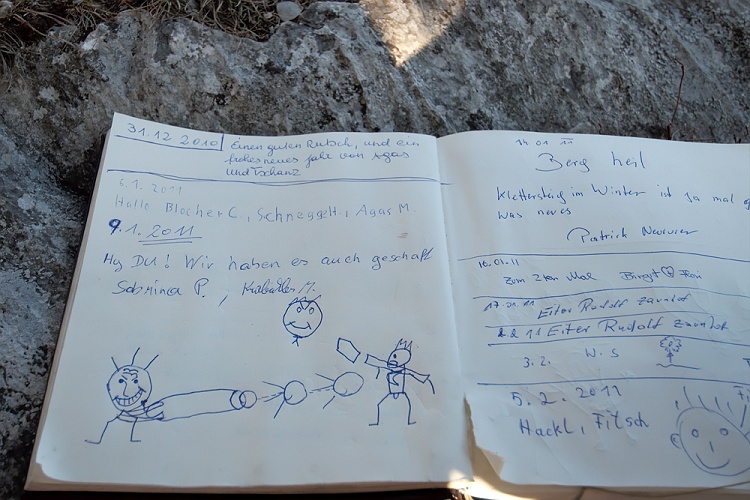 31.12 2010 Einen guten Rutsch, und ein
frohes neues Jahr von Agas
und Tschanz
6.1.2011
Hallo Blocher C., Schneggeti, Agas M
9.1.2011
Hy DU! Wir haben es auch geschaft
Sabrina P., M.
14 01 11
Berg heil
Klettersteig im Winter ist ja mal
was neues
Patrick
10.01.11
zum 2ten Mal Birgit
17.01.11 Eiter Rudolf
2 11 Eiter Rudolf
3.2. W.S
5.2.2011
Hackl, Fitsch